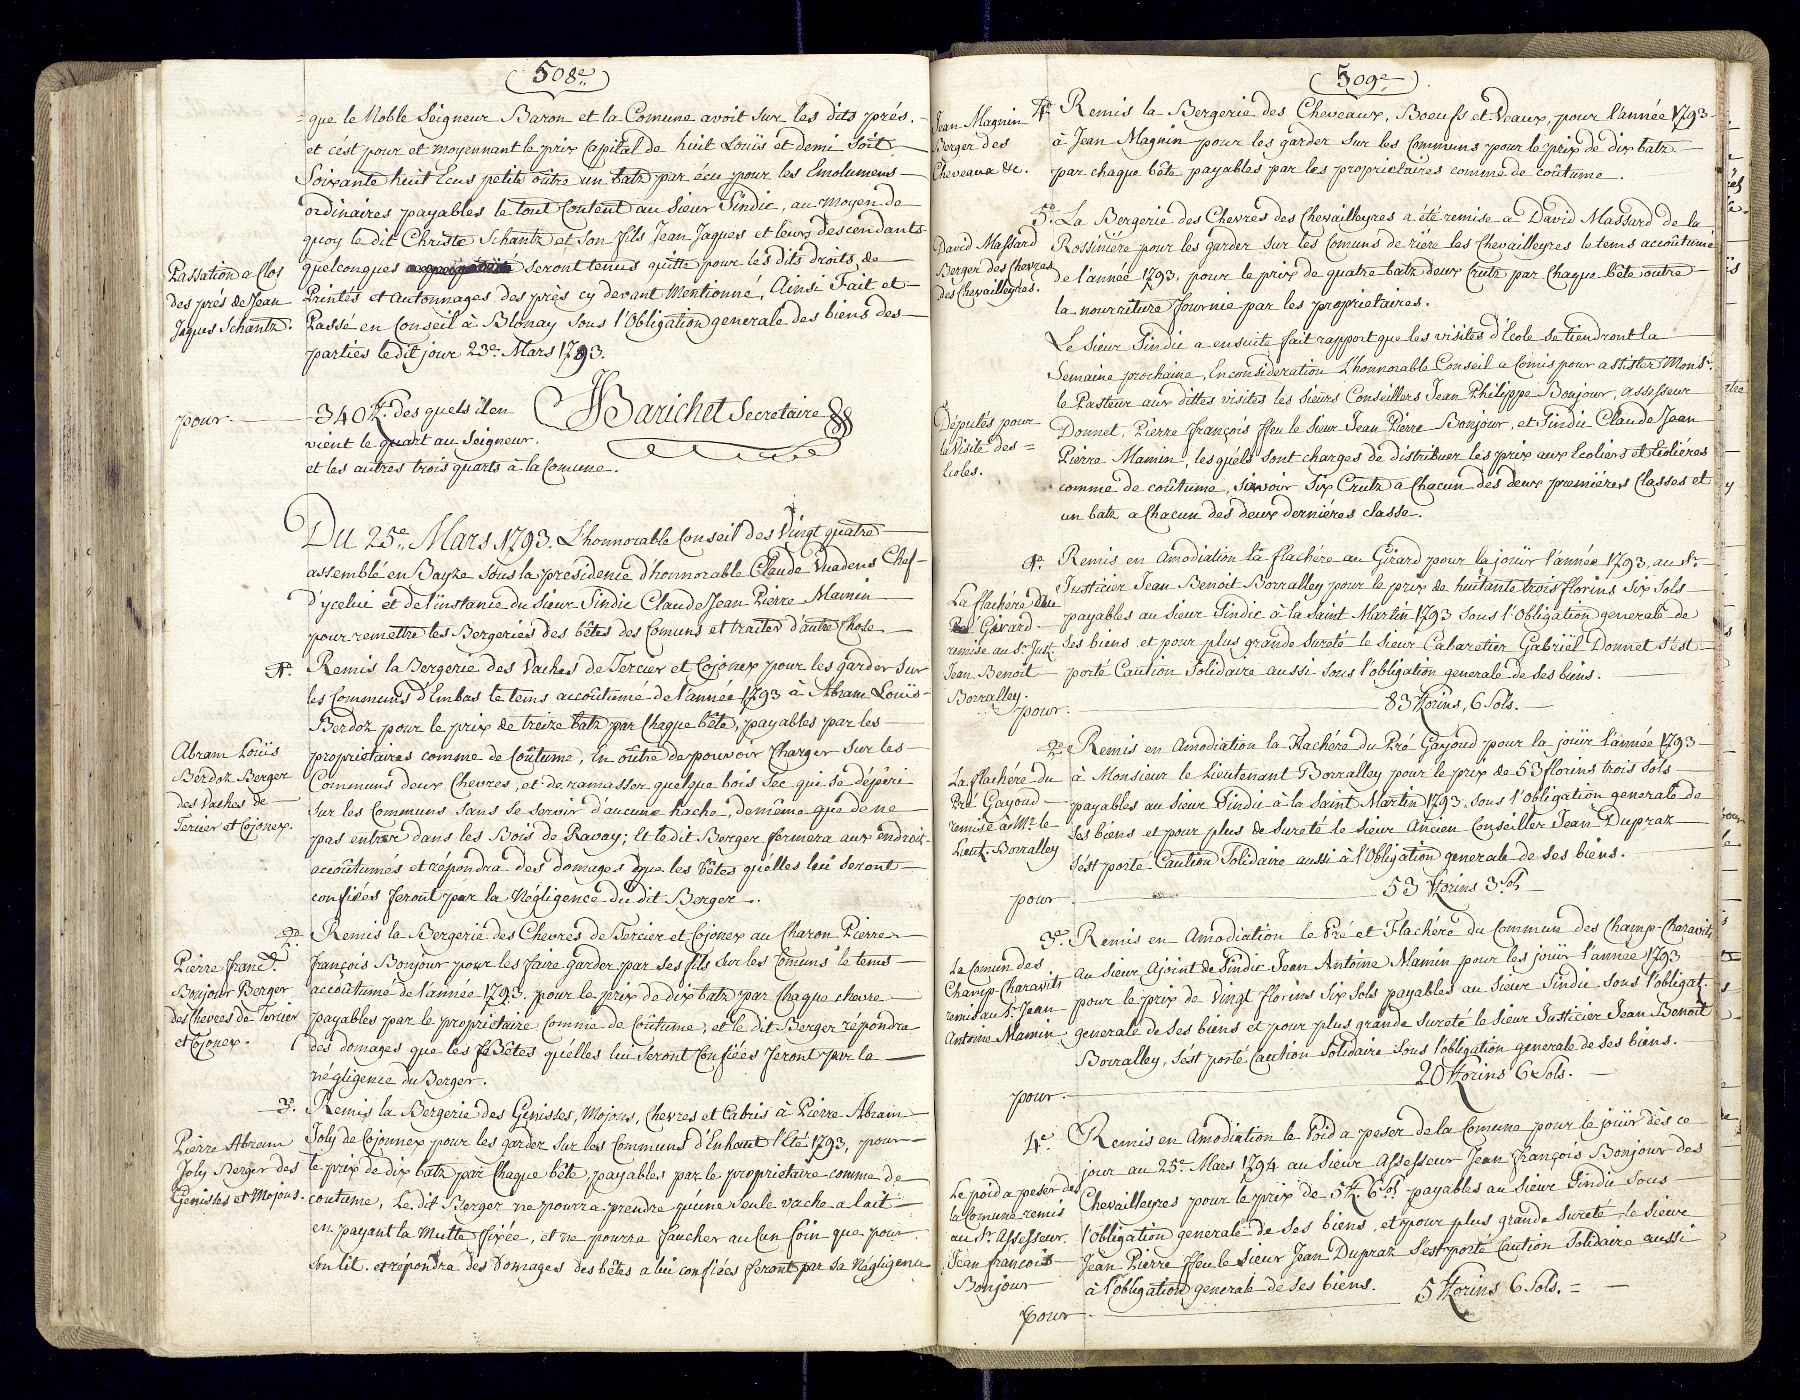 508e.
que le Noble Seigneur Baron et la Comune avoit sur les dits prés.
et c'ést pour et moyennant le prix Capital de huit Loüis et demi soit
Soixante huit Ecus petits oûtre un batz par écu pour les Emolumens
ordinaires payables le tout Content au Sieur Sindic, au moyen de
quoy le dit Christe Schantz et son fils Jean Jaques et leurs descendants
quelconques seront tenus quitte pour les dits droits de
Passation a Clos
des prés de Jean
Jaques Schantz.
Printés et autonnages des prés cy devant Mentionné, Ainsi Fait et
Passé en Conseil à Blonay sous l'Obligation generale des biens des
parties le dit jour 23e. Mars 1793.
pour.
340 fl. des quels il en
vient le quart au Seigneur.
et les autres trois quarts à la Comune.
JBarichet Secretaire
Du 25e. Mars 1793. L'honnorable Conseil des Vingt quatre
assemblé en Bayze sous la presidence d'honnorable Claude Vuadens Chef
d'ycelui et de l'instance du Sieur Sindic Claude Jean Pierre Mamin
pour remettre les Bergeries des bêtes des Comuns et traiter d'autre Chose
1o. Remis la Bergerie des Vaches de Tercier et Cojonex pour les garder sur
les Communs d'Embas le tems accoûtumé de l'année 1793 à Abram Louïs
Berdoz pour le prix de treize batz par Chaque bête, payables par les
Abram Louïs
Berdoz Berger
des Vaches de
Tercier et Cojonex.
proprietaires comme de Coûtume, en oûtre de pouvoir Charger sur les
Communs deux Chevres, et de ramasser quelque bois sec qui se dépéri
sur les Communs sans se servir d'aucune hache, demême que de ne
pas entrer dans les Bois de Ravoy; Et le dit Berger fermera aux endroit
accoûtumés et répondra des domages que les bêtes qu'elles lui seront
confiées feront par la Négligence du dit Berger.
2o. Remis la Bergerie des Chevres de Tercier et Cojonex au Charon Pierre
Pierre Franc.
Bonjour Berger
des Chevres de Tercier
et Cojonex.
françois Bonjour pour les faire garder par ses fils sur les Comuns le tems
accoûtumé de l'année 1793. pour le prix de dix batz par Chaque chevre
payables par le proprietaire Comme de Coûtume, et le dit Berger répondra
des domages que les Bêtes qu'elles lui seront Confiées feront par la
négligence du Berger.
3o. Remis la Bergerie des Genisses, Mojons, Chevres et Cabris à Pierre Abram
Pierre Abram
Joly Berger des
Genisses et Mojons.
Joly de Cojonnex pour les garder sur les Communs d'Enhaut l'Eté 1793, pour
le prix de dix batz par Chaque bête, payables par le proprietaire comme de
coutume, Le dit Berger ne pourra prendre qu'une seule vache a lait
en payant la Mutte fixée, et ne pourra faucher aucun foin que pour
son lit. et répondra des Domages des bêtes a lui confiées feront par sa Négligence
509e.
Jean Magnin
Berger des
Cheveaux &c.
4o. Remis la Bergerie des Cheveaux, Boeufs et Veaux, pour l'année 1793
à Jean Magnin pour les garder sur les Communs pour le prix de dix batz
par chaque bête payables par les proprietaires comme de coûtume.
5o. La Bergerie des Chevres des Chevailleyres a été remise a David Massard de la
David Massard
Berger des Chevres
des Chevailleyres.
Rossiniére pour les garder sur les Comuns de riére les Chevailleyres le tems accoûtumé
de l'année 1793, pour le prix de quatre batz deux Crutz par Chaque bête outre
la nourriture fournie par les proprietaires.
Le Sieur Sindic a ensuite fait rapport que les visites d'Ecole se tiendront la
Semaine prochaine, Enconsideration L'honnorable Conseil a Comis pour assister Monsr.
Députés pour
la Visite des
Ecoles.
le Pasteur aux dittes visites les Sieurs Conseillers Jean Philippe Bonjour, assesseur
Donnet, Pierre françois ffeu le Sieur Jean Pierre Bonjour, et Sindic Claude Jean
Pierre Mamin, lesquéls sont chargés de distribuer les prix aux Ecoliers et Ecoliéres
comme de coûtume, savoir Six Crutz à Chacun des deux premiéres Classes et
un batz a Chacun des deux dernières classe.
1o. Remis en Amodiation la flachére au Girard pour la joüir l'année 1793, au Sr.
La flachére du
Girard
remise au Sr. Just.
Jean Benoit
Borralley.
Justicier Jean Benoit Borralley pour le prix de huitante trois florins six sols
payables au Sieur Sindic à la Saint Martin 1793 sous l'Obligation generale de
ses biens et pour plus grande sureté le Sieur Cabaretier Gabriël Donnet s'ést
porté Caution Solidaire aussi sous l'obligation generale de ses biens.
pour. 83 florins, 6 Sols.
2e. Remis en Amodiation la flachére du Pré Gayoud pour la joüir l'année 1793
La flachére du
Pré Gayoud
remise à Mr. le
Lieut. Borralley
à Monsieur le Lieutenant Borralley pour le prix de 53 florins trois sols
payables au Sieur Sindic à la Saint Martin 1793, sous l'Obligation generale de
ses biens et pour plus de sureté le Sieur Ancien Conseiller Jean Dupraz
s'ést porté Caution Solidaire aussi à l'Obligation generale de ses biens.
pour 53 florins 3 sols
3e. Remis en Amodiation le Pré et Flachére du Commun des Champ-Charavits
Le Comun des
Champ-Charavits
remis au Sr. Jean
Antoine Mamin
au Sieur Ajoint de Sindic Jean Antoine Mamin pour les joüir l'année 1793
pour le prix de Vingt florins Six Sols payables au Sieur Sindic sous l'obligat.
generale de ses biens et pour plus grande sureté le Sieur Justicier Jean Benoit
Borralley, s'ést porté Caution Solidaire sous l'obligation generale de ses biens.
pour. 20 florins 6 Sols.
4e. Remis en Amodiation le Poid a peser de la Comune pour le joüir dès ce
jour au 25e. Mars 1794 au Sieur Assesseur Jean françois Bonjour des
Le poid a peser de
la Comune remis
au Sr. Assesseur
Jean francois
Bonjour
Chevailleyres pour le prix de 5 fl. 6 sols payables au Sieur Sindic sous
l'Obligation generale de ses biens, et pour plus grande sureté, le Sieur
Jean Pierre ffeu le Sieur Jean Dupraz s'est porté Caution Solidaire aussi
à l'obligation generale de ses biens.
pour 5 florins 6 Sols.